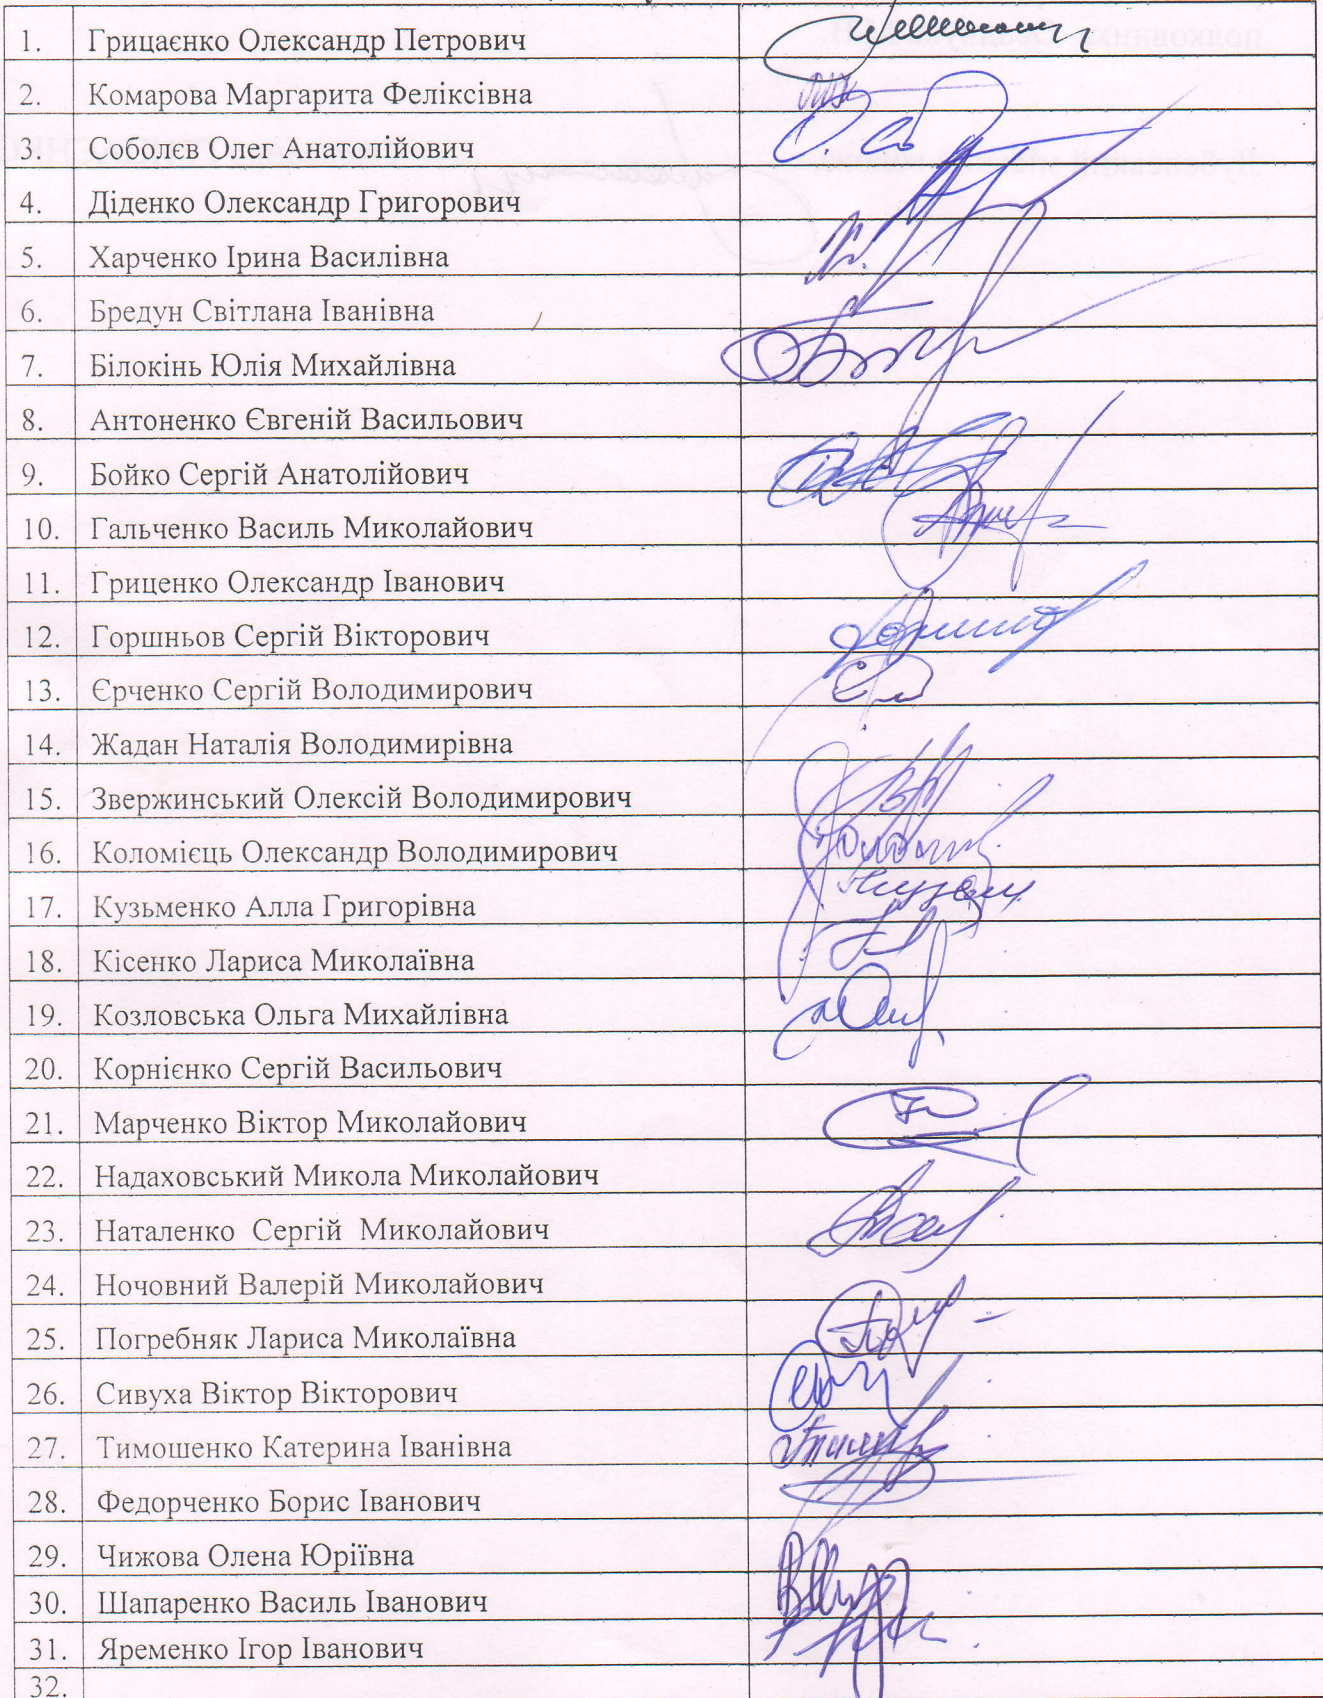 1. Грицаєнко Олександр Петрович
2. Комарова Маргарита Феліксівна
3. Соболєв Олег Анатолійович
4. Діденко Олександр Григорович
5. Харченко Ірина Василівна
6. Бредун Світлана Іванівна
7. Білокінь Юлія Михайлівна
8. Антоненко Євгеній Васильович
9. Бойко Сергій Анатолійович
10. Гальченко Василь Миколайович
11. Гриценко Олександр Іванович
12. Горшньов Сергій Вікторович
13. Єрченко Сергій Володимирович
14. Жадан Наталія Володимирівна
15. Звержинський Олексій Володимирович
16. Коломієць Олександр Володимирович
17. Кузьменко Алла Григорівна
18. Кісенко Лариса Миколаївна
19. Козловська Ольга Михайлівна
20. Корнієнко Сергій Васильович
21. Марченко Віктор Миколайович
22. Надаховський Микола Миколайович
23. Наталенко Сергій Миколайович
24. Ночовний Валерій Миколайович
25. Погребняк Лариса Миколаївна
26. Сивуха Віктор Вікторович
27. Тимошенко Катерина Іванівна
28. Федорченко Борис Іванович
29. Чижова Олена Юріївна
30. Шапаренко Василь Іванович
31. Яременко Ігор Іванович
32.